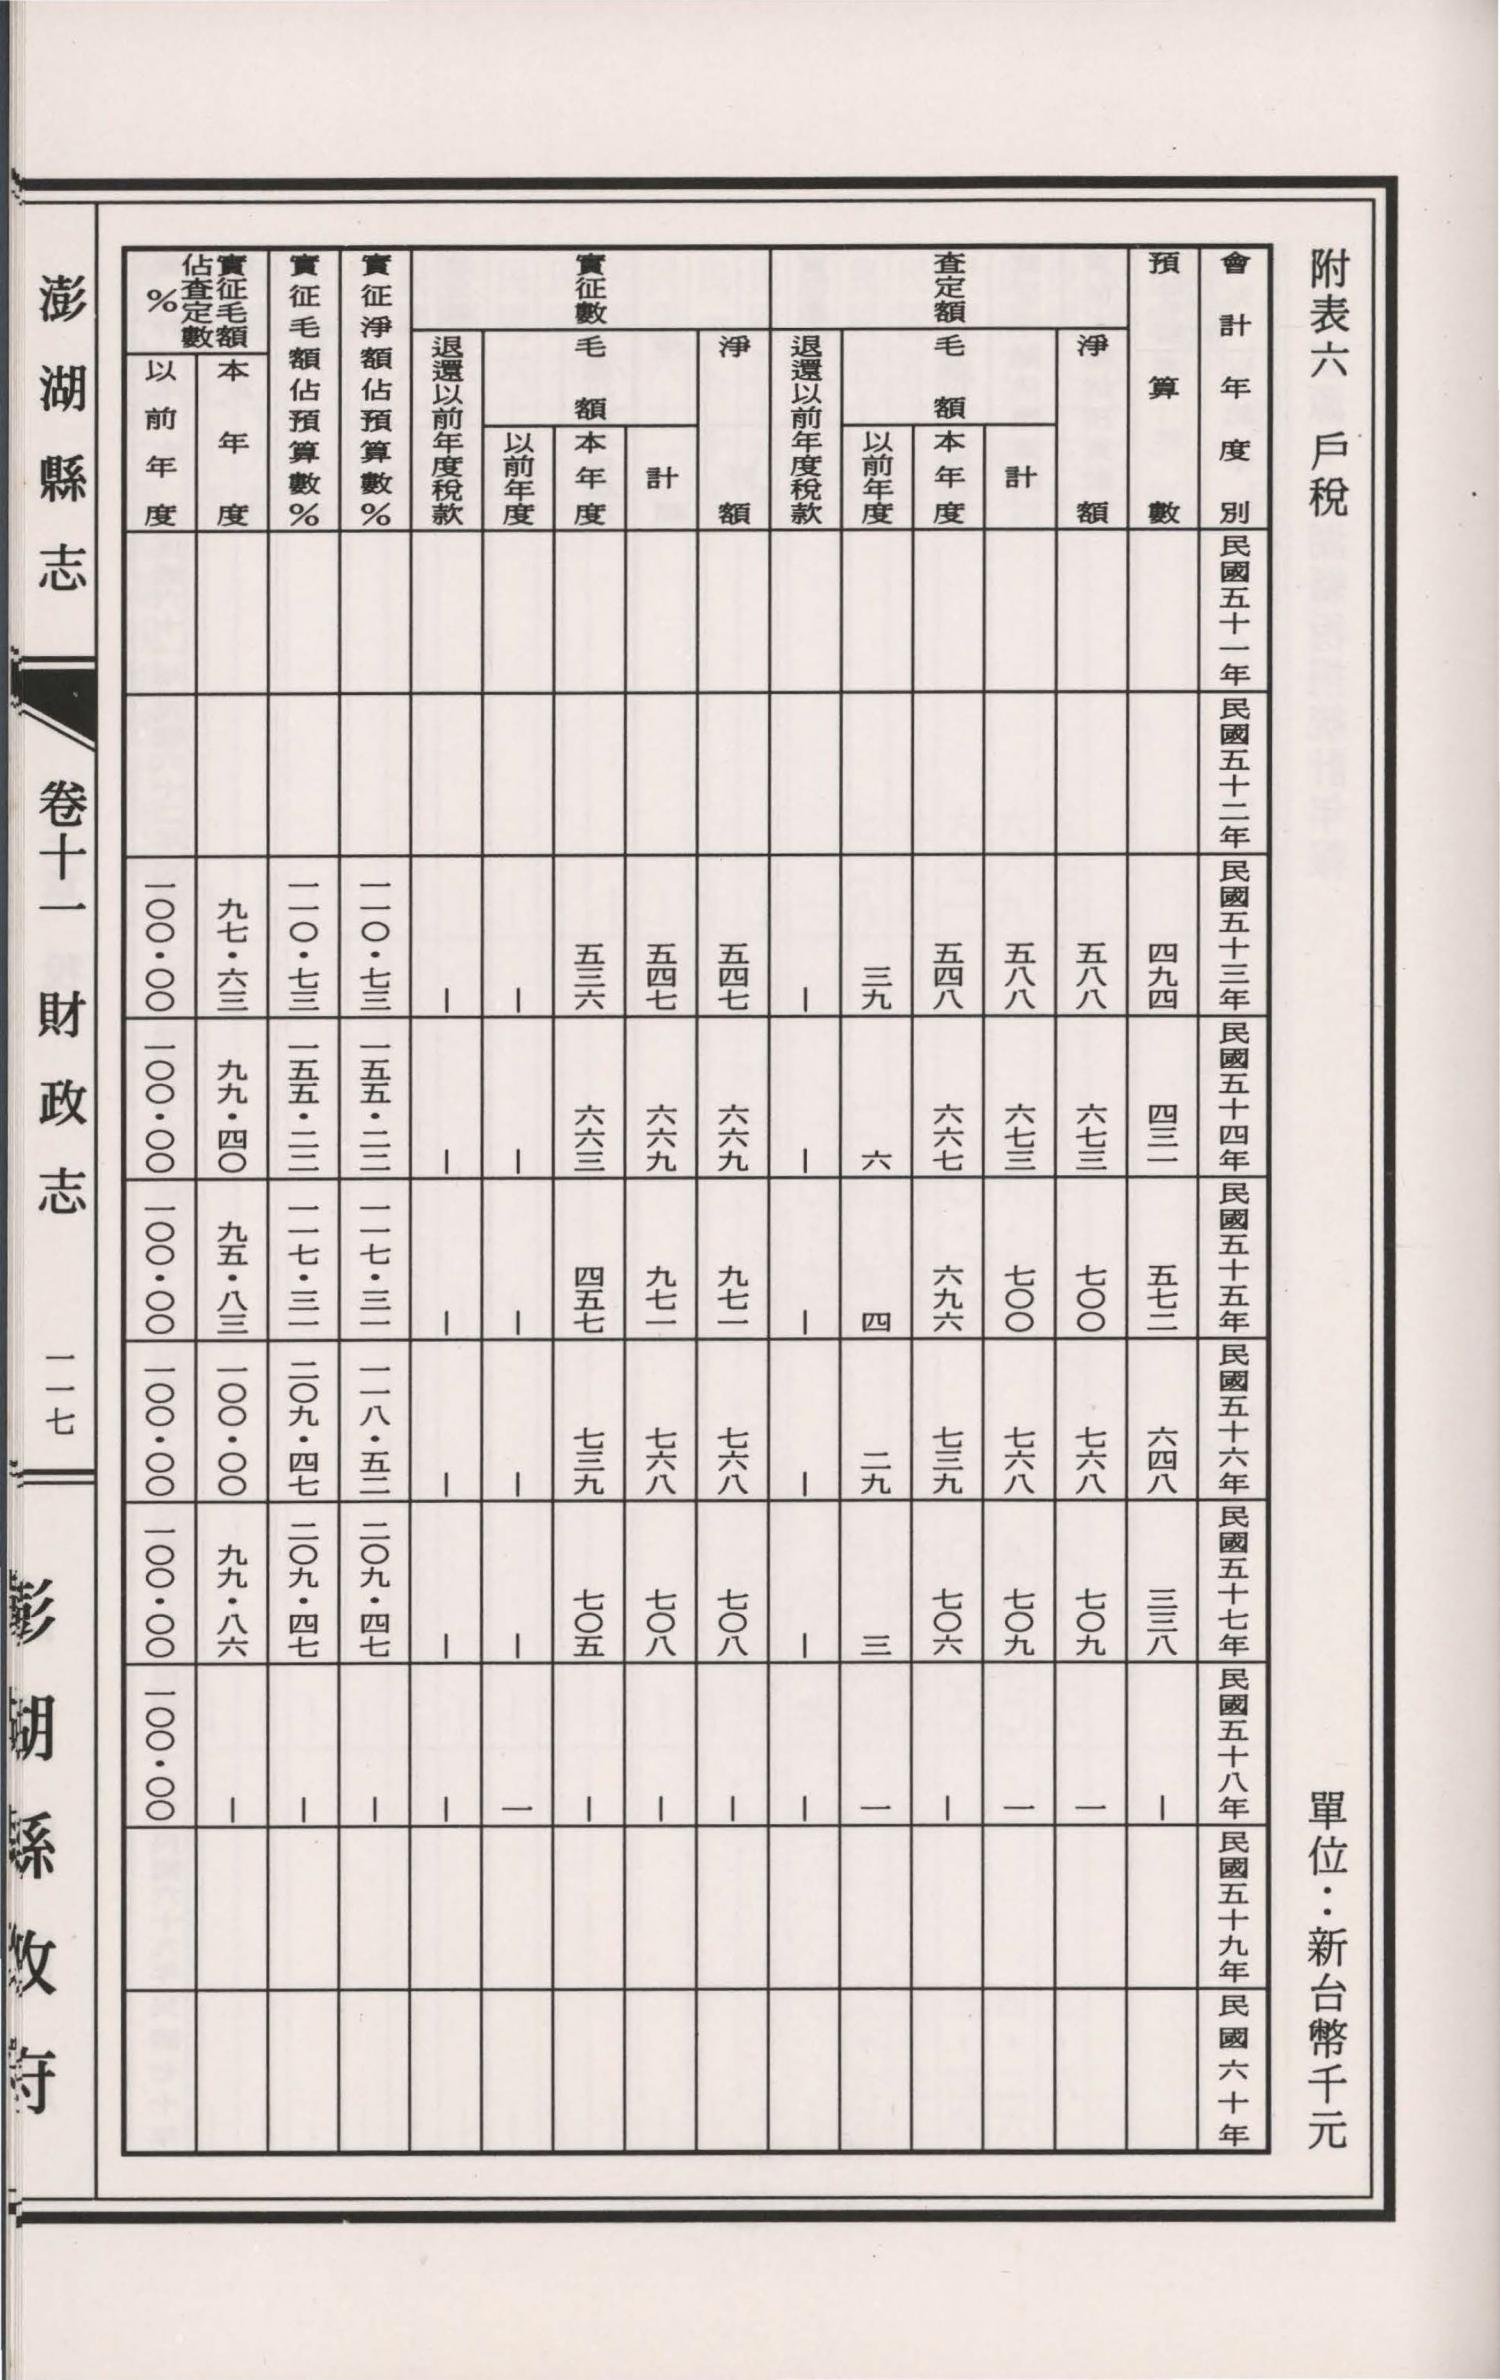 附表六　戶稅
單位：新台幣千元
會計年度別　民國五十一年　民國五十二年　民國五十三年　民國五十四年　民國五十五年　民國五十六年　民國五十七年　民國五十八年　民國五十九年　民國六十年
預算數　四九四　四三一　五七二　六四八　三三八　｜
查定額
淨額　五八八　六七三　七〇〇　七六八　七〇九　一
毛額
計　五八八　六七三　七〇〇　七六八　七〇九　一
本年度　五四八　六六七　六九六　七三九　七〇六　｜
以前年度　三九　六　四　二九　三　一
退還以前年度稅款　｜　｜　｜　｜　｜　｜
實征數
淨額　五四七　六六九　九七一　七六八　七〇八　｜
毛額
計　五四七　六六九　九七一　七六八　七〇八　｜
本年度　五三六　六六三　四五七　七三九　七〇五　｜
以前年度　｜　｜　｜　｜　｜　一
退還以前年度稅款　｜　｜　｜　｜　｜　｜
實征淨額佔預算數％　一一〇・七三　一五五・二二　一一七・三一　一一八・五二　二〇九・四七　｜
實征毛額佔預算數％　一一〇・七三　一五五・二二　一一七・三一　二〇九・四七　二〇九・四七　｜
實征毛額佔查定數％
本年度　九七・六三　九九・四〇　九五・八三　一〇〇・〇〇　九九・八六　｜
以前年度　一〇〇・〇〇　一〇〇・〇〇　一〇〇・〇〇　一〇〇・〇〇　一〇〇・〇〇　一〇〇・〇〇
澎湖縣志　卷十一　財政志　一一七
澎湖縣政府